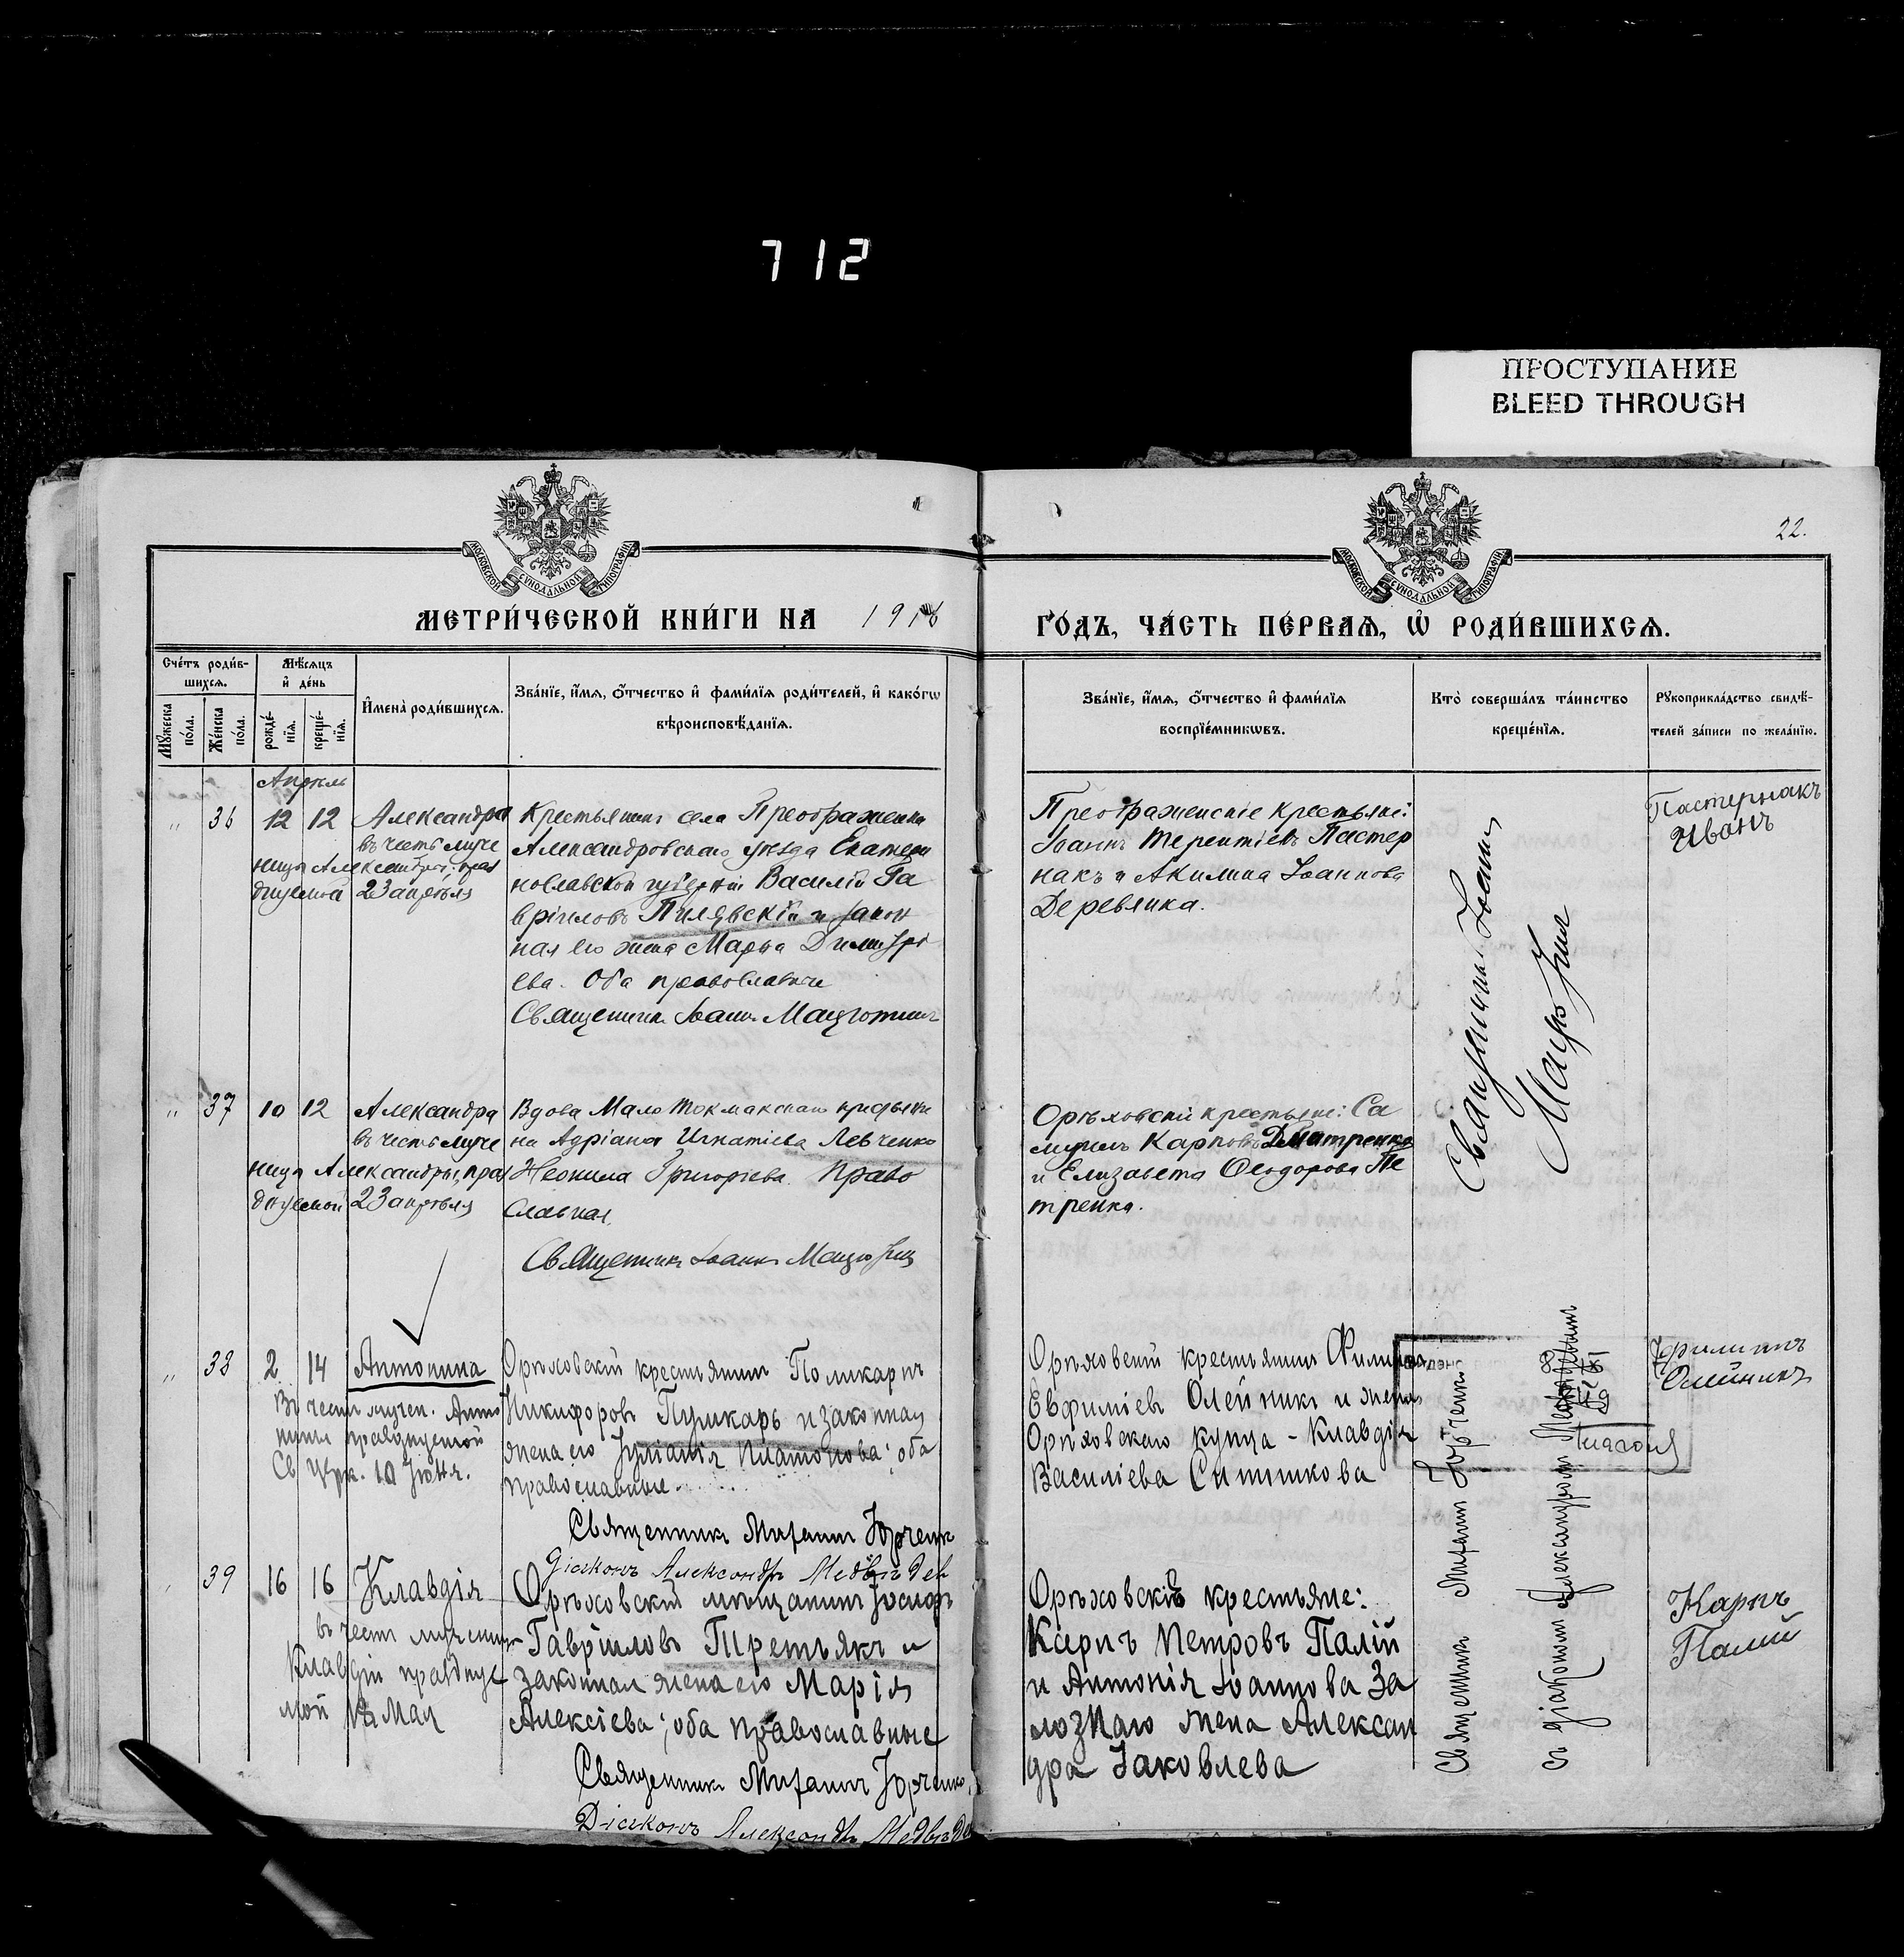 712
ПРОСТУПАНИЕ
BLEED THROUGH
МОСКОВСКОЙ СѴНОДАЛЬНОЙ ТИПОГРАФІИ
МОСКОВСКОЙ СѴНОДАЛЬНОЙ ТИПОГРАФІИ
22.
МЕТРИ́ЧЕСКОЙ КНИ́ГИ НА 1916
ГО́ДЪ, ЧА́СТЬ ПЕ́РВАѦ, Ѡ҆ РОДИ́ВШИХСѦ.
Сче́тъ роди́в-
шихсѧ.
Мꙋ́жеска
по́ла.
Же́нска
по́ла.
Мѣ́сѧцъ
и҆ де́нь
рожде́-
нїѧ.
креще́-
нїѧ.
И҆мена̀ роди́вшихсѧ.
Зва́нїе, и҆́мѧ, ѻ҆́тчество и҆ фами́лїѧ роди́телей, и҆ како́гѡ
вѣроисповѣ́данїѧ.
Зва́нїе, и҆́мѧ, ѻ҆́тчество и҆ фами́лїѧ
воспрїе́мникѡвъ.
Кто̀ соверша́лъ та́инство
креще́нїѧ.
Рꙋкоприкла́дство свидѣ́-
телей за́писи по жела́нїю.
Апрѣль
36 12 12 Александра
въ честь муче
ницы Александры, праз
днуемой 23 апрѣля
Крестьянинъ села Преображенки
Александровскаго уѣзда Екатери
нославской губерніи Василій Га
вріиловъ Пилявскій и закон
ная его жена Марѳа Димитрі
ева. Оба православные
Священникъ Іоаннъ Мацютинъ
Преображенскіе крестьяне:
Іоаннъ Терентіевъ Пастер
накъ и Акилина Іоаннова
Деревянка.
Священникъ Іоаннъ
Пастернакъ
Иванъ
37 10 12 Александра
въ честь муче
ницы Александры, праз
днуемой 23 апрѣля
Вдова Мало Токмакскаго крестьяни
на Адріана Игнатіева Левченко
Неонила Григоріева. Право
славная.
Священникъ Іоаннъ
Орѣховскіе крестьяне: Са
муилъ Карповъ
и Елизавета Ѳеодорова Пе
тренко.
38 2 14 Антонина
Въ честь мучен. Анто
нины празднуемой
Св. Церк. 10 Іюня.
Орѣховскій крестьянинъ Поликарпъ
Никифоровъ Пушкарь и законная
жена его Іуліанія Платонова; оба
православные.
Священникъ Михаилъ Юрченко
Діаконъ Александръ Медвѣдев
Орѣховскій крестьянинъ Филиппъ
Евфиміевъ Олейникъ и жена
Орѣховскаго купца - Клавдія
Василіева Ситникова
Священникъ Михаилъ Юрченко
съ діакономъ Александромъ
Филиппъ
Олийникъ
39 16 16 Клавдія
въ честь мученицы
Клавдіи празднуе
мой Мая
Орѣховскій мѣщанинъ Іосифъ
Гавріиловъ Третьякъ и
законная жена его Марія
Алексіева; оба православные
Священникъ Михаилъ Юрченко
Діаконъ Александръ Медвѣдев
Орѣховскіе крестьяне:
Карпъ Петровъ Палій
и Антонія Іоаннова За
лознаго жена Алексан
дра Іаковлева
Карпъ
Палий